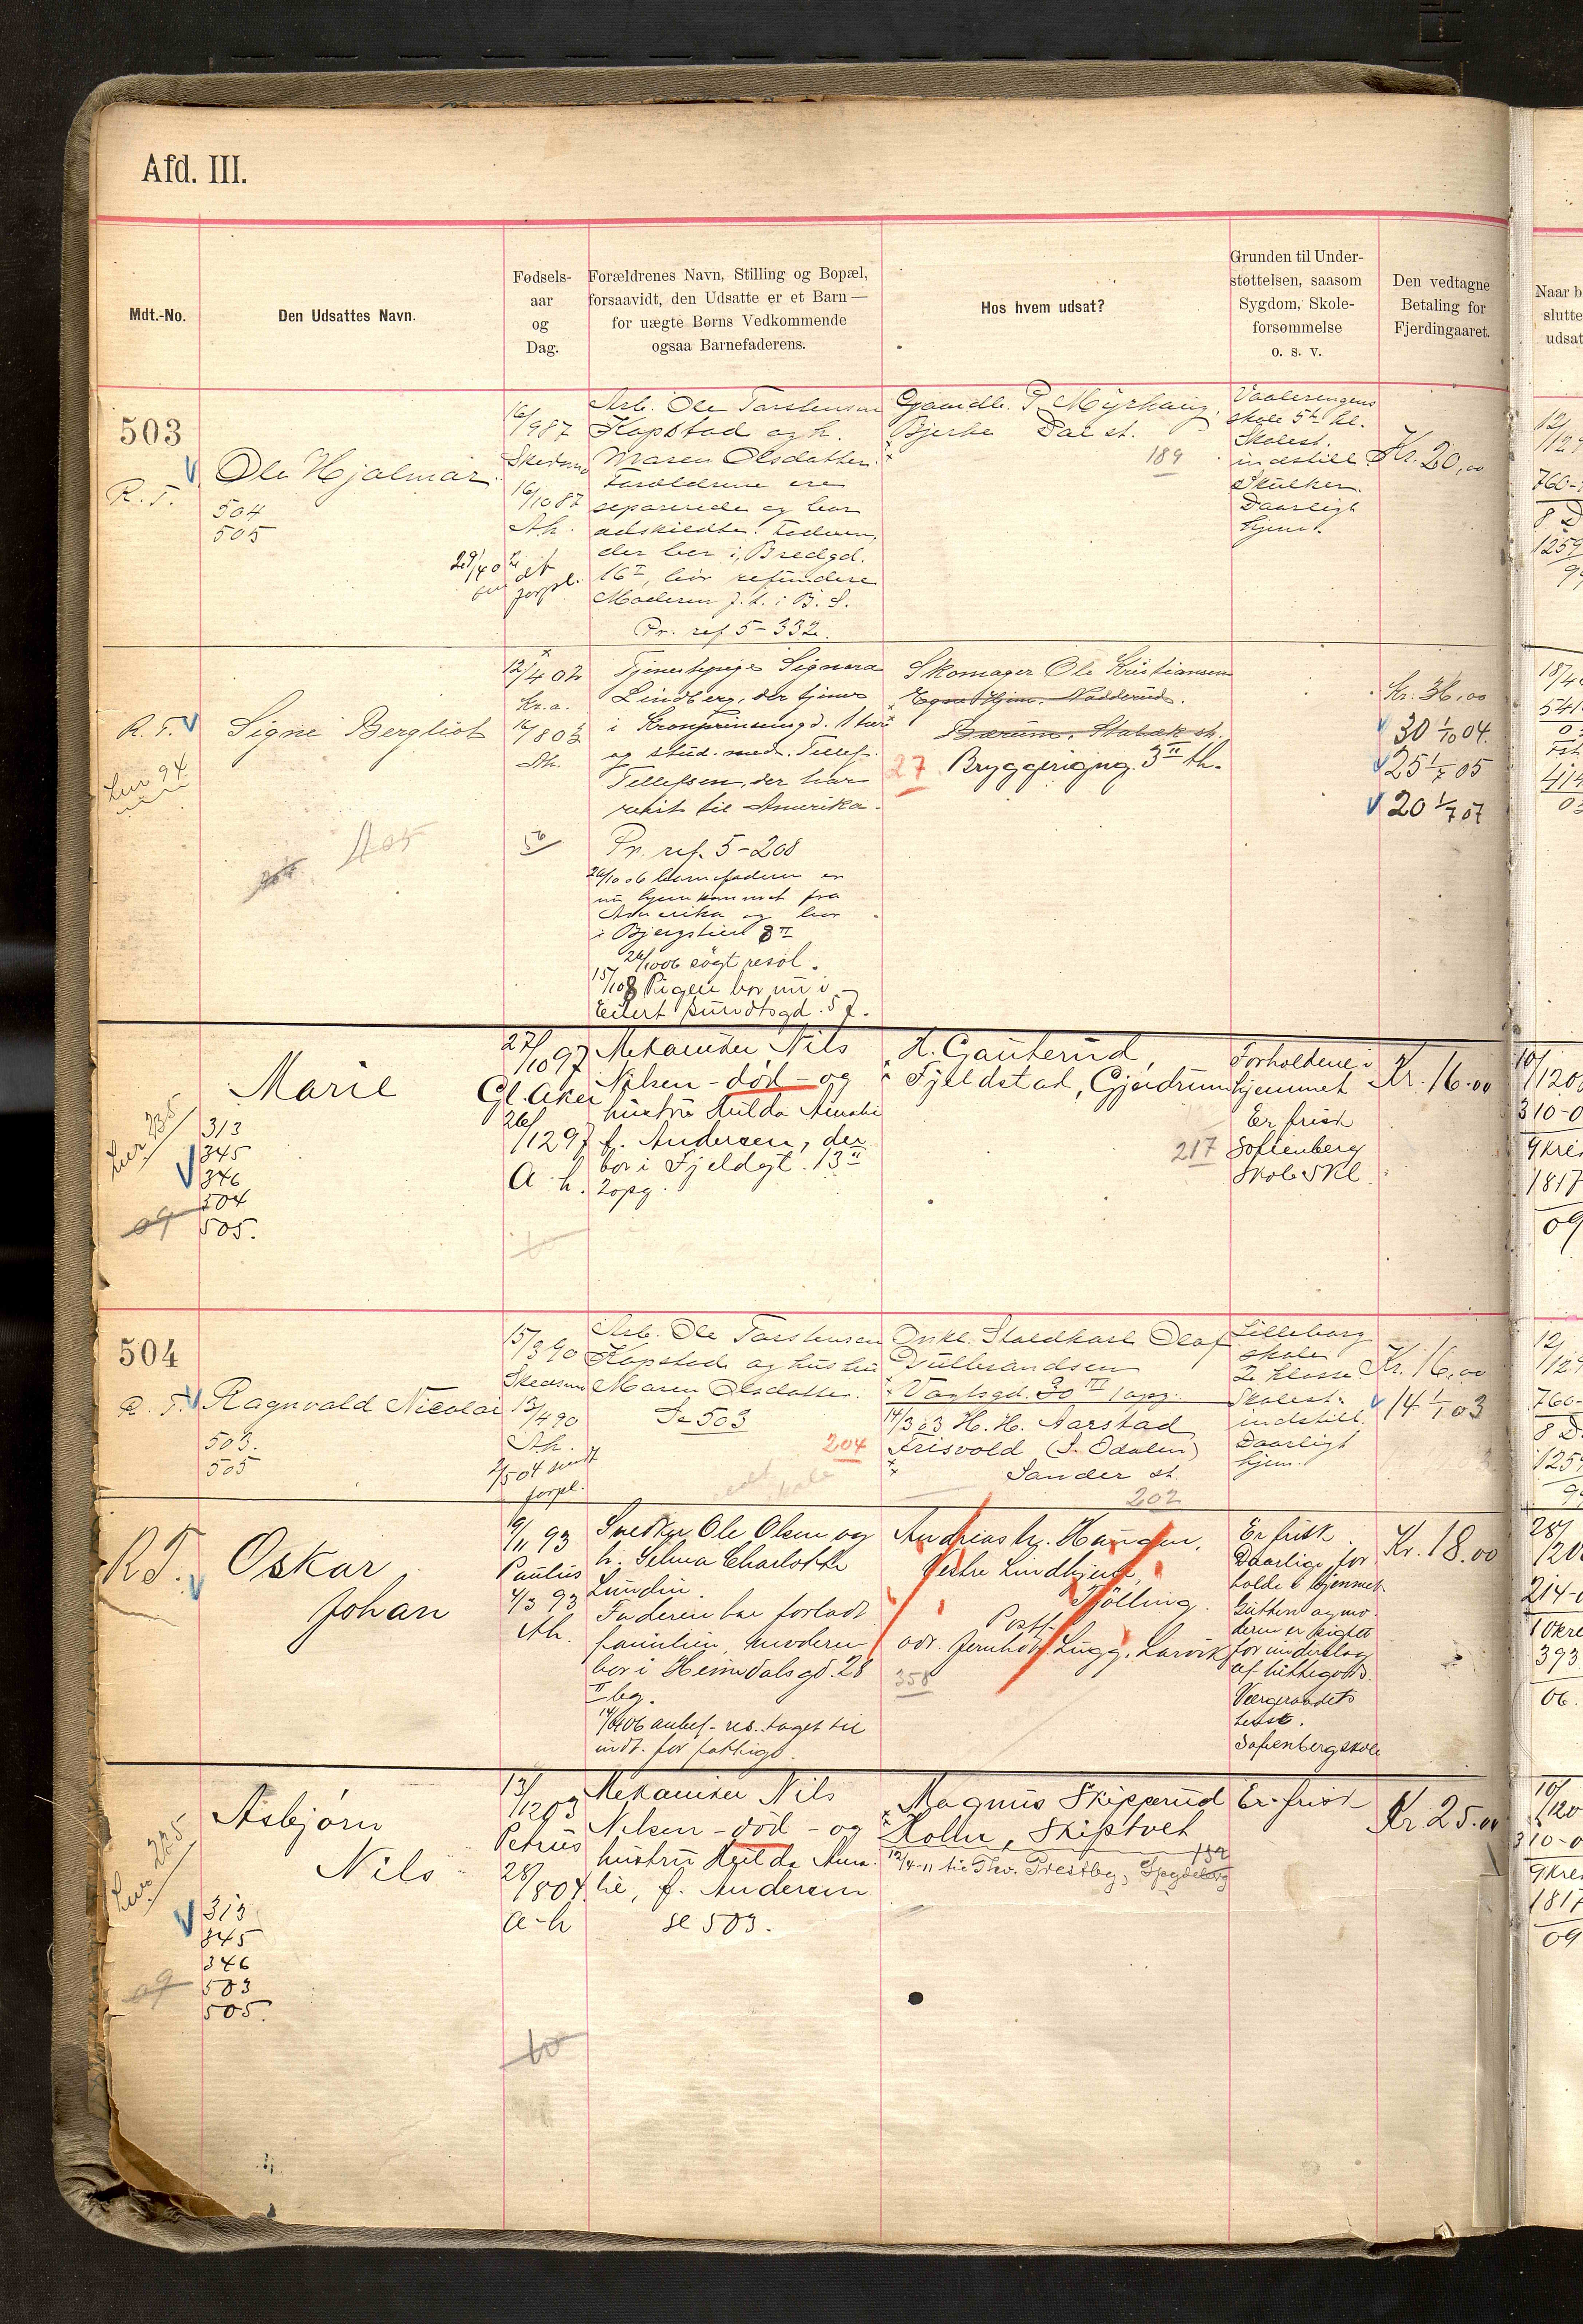 Afd. III.
Mdt.-No.
Den Udsattes Navn.
Fødsels-
aar
og
Dag.
Forældrenes Navn, Stilling og Bopæl,
forsaavidt, den Udsatte er et Barn —
for uægte Børns Vedkommende
ogsaa Barnefaderens.
Hos hvem udsat?
Grunden til Under-
støttelsen, saasom
Sygdom, Skole-
forsømmelse
o. s. v.
Den vedtagne
Betaling for
Fjerdingaaret.
Naar b
slutte
udsat
503
R. T.
Ole Hjalmar
504
505
16/987
Skedsmo
16/1087
Ak.
Arb. Ole Torstensen
Kopstad og h.
Maren Olsdatter.
Forældrene ere
separerede og bor
adskildte. Faderen,
der bor i Bredgd.
16 I, bør refundere
Moderen f. t. i B. S.
Pr. ref 5-332.
P. Myrhaug,
Bjerke Dal st.
189
Vaalerengens
skole 5te kl.
Skolest.
indstill.
Skulker.
Daarligt
hjem.
Kr. 20,00
R. T.
Signe Bergliot
Lur 94
405
12/4 02
Kr.a.
Ak.
Tjenestepige Signora
Lindberg, der tjener
i Kronprinsensgd. 1
og stud. med. Tellef
Tellefsen, der har
reist til Amerika.
Pr. ref. 5-208
26/10 06 barnefaderen er
nu hjemkommet fra
Amerika og bor
i Bjergstien 8 II
26/1006 søgt resol.
15/108 Pigen bor nu i
Eilert Sundtsgd. 57.
Skomager Ole Kristiansen
Egne Hjem, Nadderud.
Bærum, Stabæk st.
27 Bryggerigng. 3 II th.
Kr. 36,00
30 1/10 04.
25 1/7 05
20 1/7 07
Marie
Lur 235
313
345
346
504
505.
09
27/1097
Gl. Aker
26/1297
A. h.
Mekaniker Nils
Nilsen - død - og
hustru Hulda Amalie
f. Andersen, der
bor i Fjeldgt. 13 II
2 opg.
A. Gauterud,
Fjeldstad, Gjerdrum
217
Forholdene i
hjemmet
Er frisk
Sofienberg
Skole 5 Kl.
Kr. 16.00
504
R. T.
Ragnvald Nicolai
503.
505
15/390
Skedsmo
13/490
Ak.
2/504 sendt
forpl.
Arb. Ole Torstensen
Kopstad og hustru
Maren Olsdatter.
Se 503
204
Onkl. Staldkarl Olaf
Gulbrandsen
Vogtsgd. 30 III 1 opg.
14/3 03 H. H. Aarstad
Frisvold (S. Odalen)
Sander st.
202
Lilleborg
skole
2 klasse
Skolest.
indstill.
Daarligt
hjem.
Kr. 16,00
14 1/1 03
R T.
Oskar
Johan
9/11 93
Paulus
4/3 93
Ak.
Snedker Ole Olsen og
h. Selma Charlotte
Lundin.
Faderen har forladt
familien, moderen
bor i Heimdalsgd. 28
II bg.
14/6 06 anbef. res. taget til
indt. for fattigv.
Andreas Haugen,
Vestre Lindhjem,
Tjølling.
Post.
adr. Jernhdl. Lugg. Larvik
358
Er frisk
Daarlige for
holde i hjemmet
Gutten og mo
deren er sigtet
for underslag
af hittegods.
Vergeraadets
Sofienbergskole
Kr. 18.00
Asbjørn
Nils
Lur. 235
313
345
346
503
505.
09
13/1203
Petrus
28/804
A-h
Mekaniker Nils
Nilsen - død - og
hustru Hulda Ama-
lie, f. Andersen
se 503.
Magnus Skipperud
Holm, Skiptvet
132
12/4-11 til Thv. Prestby, Spydeberg
Er frisk
Kr. 25.00